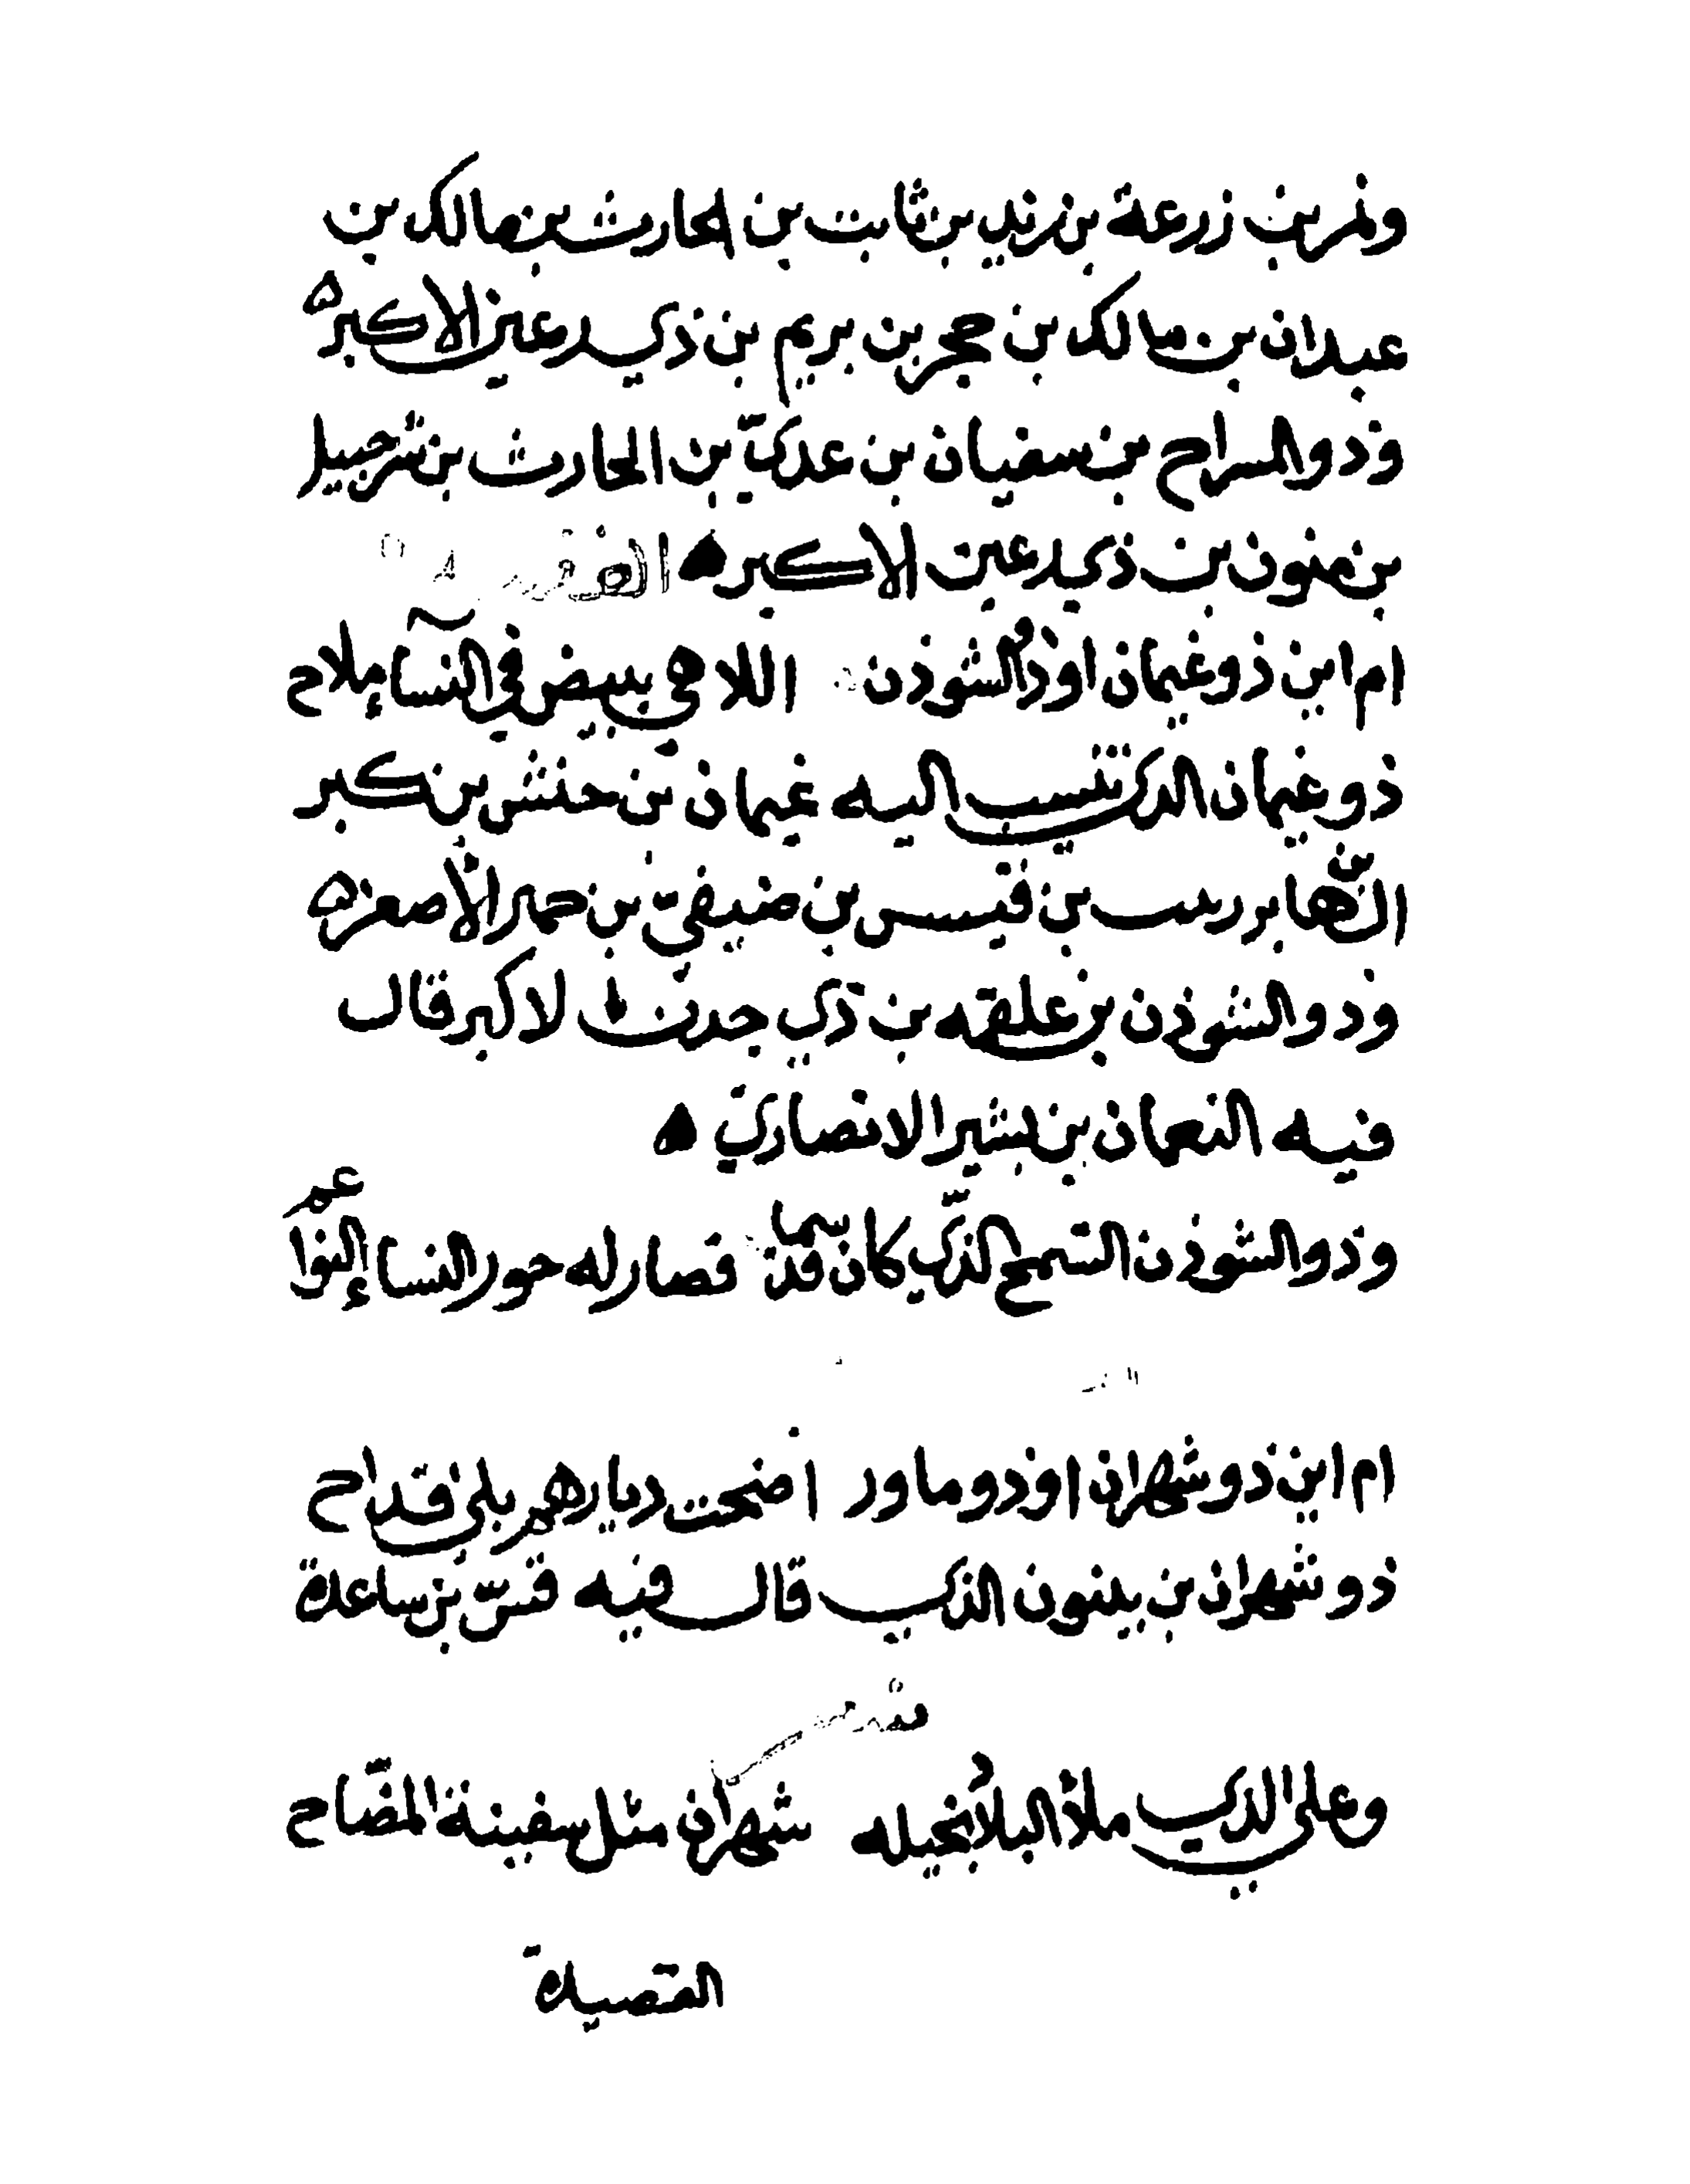 ونمر بن زرعة بن زيد بن ثابت بن الحارث بن مالك بن
عبدان بن مالك بن حجر بن يريم بن ذي رعين الاكبر
وذو السراح بن سفيان بن عدكة بن الحارث بن شرحبيل
بن منون بن ذي رعين الاكبر
ام اين ذو غيمان او ذو الشوذن اللاهي ببيض في النساء ملاح
ذو غيمان الذي تنسب اليه غيمان بن حنش بن كبر
بن قيس بن صيفي بن حمير الأصغر
وذو الشوذن بن علقمه بن ذي جدن الاكبر قال
فيه النعمان بن بشير الانصاري
وذو الشوذن السمح الذي كان قد سما فصار له حور النساء النواعم
ام اين ذو شهران او ذو ماور اضحت ديارهم بلى قداح
ذو شهران بن بينون الذي قال فيه قس بن ساعدة
وعلى الذي ملأ البلاد بخيله شهران مثل سفينة الملاح
القصيدة